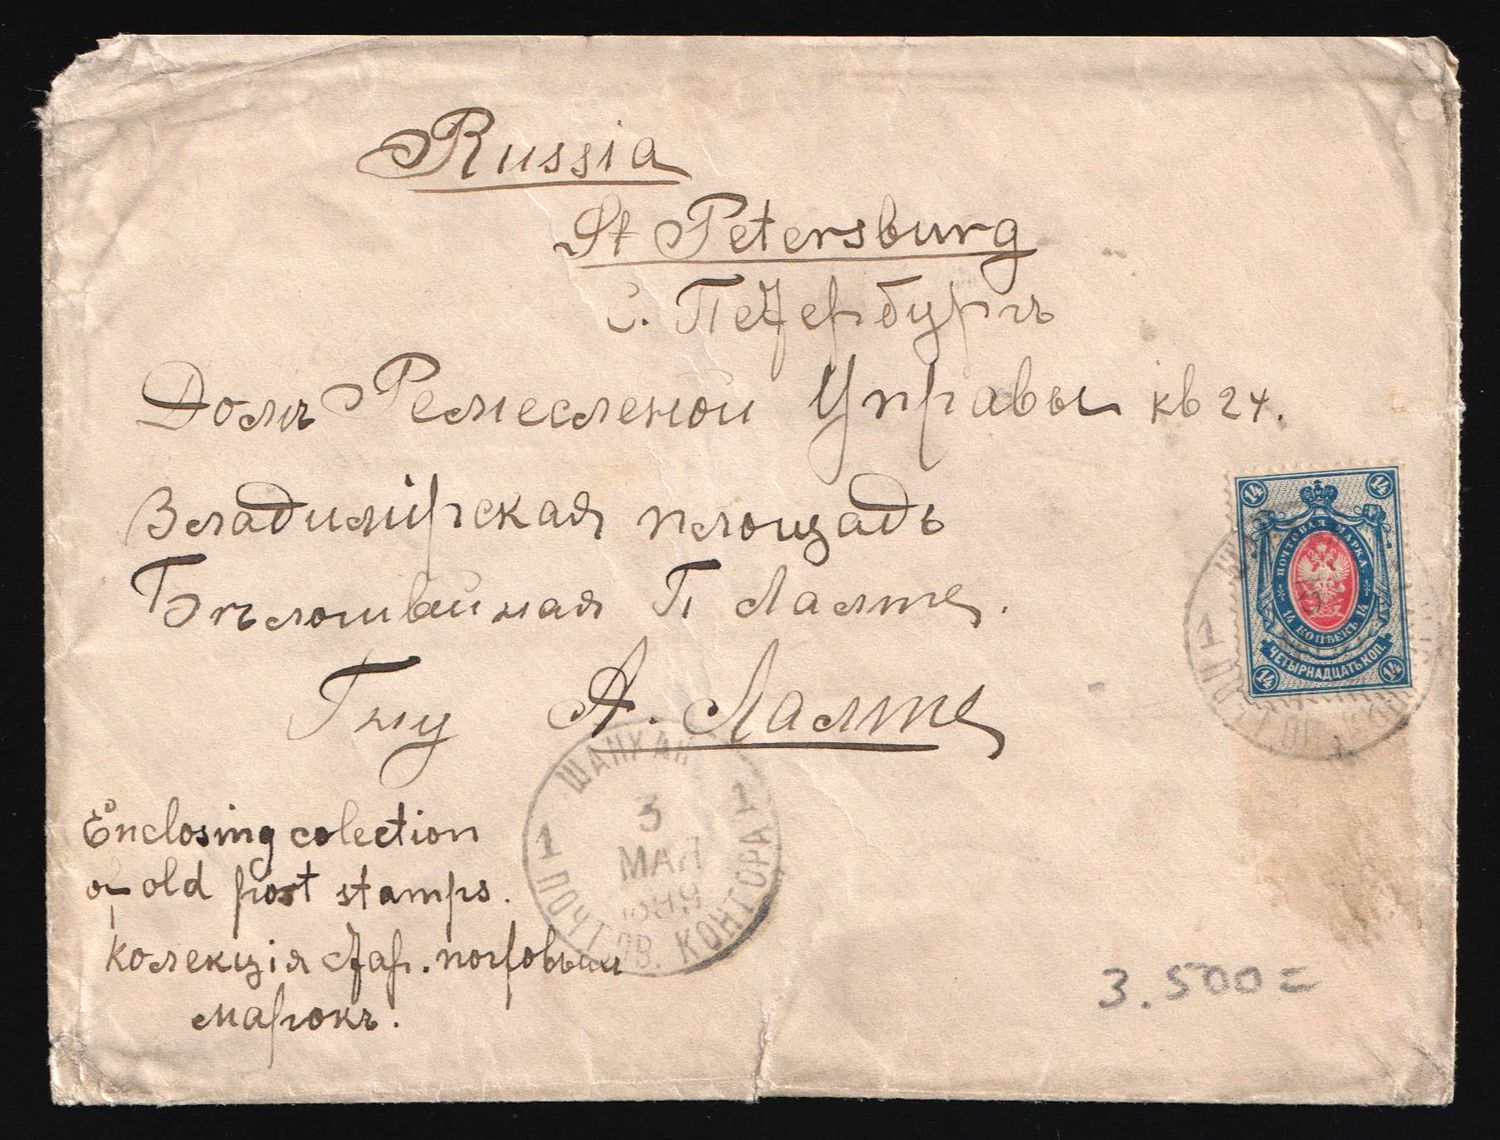 Russia
St Petersburg
С. Петербургъ
Домъ Ремесленой Управы кв 24.
Владимірская площадь
Бѣлошвейная П Лалте.
Гну А. Лалте
Enclosing colection
of old post stamps.
колекція стар. почтовыхъ
марокъ.
ШАНХАЙ
3
МАЯ
1 ПОЧТОВ. КОНТОРА 1
14 14
ПОЧТОВАЯ МАРКА
14 КОПѢЕКЪ 14
ЧЕТЫРНАДЦАТЬ КОП.
14 14
3.500=